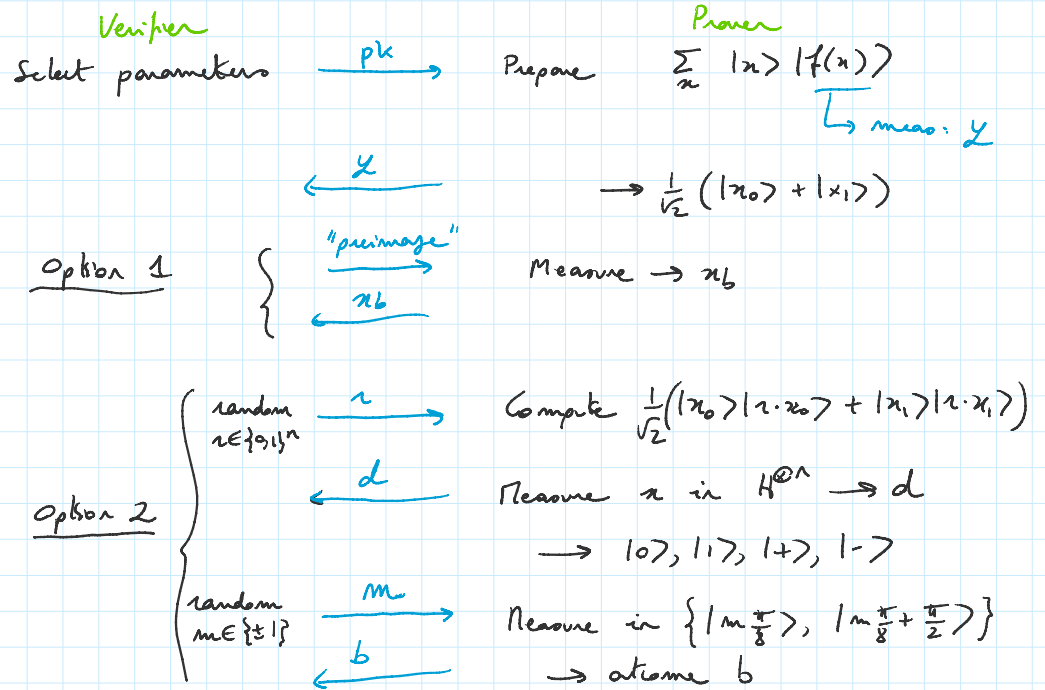 Verifier Prover
Select parameters pk Prepare Σ_x |x> |f(x)>
meas: y
y → 1/√2 (|x₀> + |x₁>)
Option 1 "preimage" Measure → x_b
x_b
random r Compute 1/√2 (|x₀>|r·x₀> + |x₁>|r·x₁>)
r∈{0,1}ⁿ
d Measure x in H^⊗n → d
Option 2
→ |0>, |1>, |+>, |->
random m Measure in {|m π/8>, |m π/8 + π/2>}
m∈{±1}
b → outcome b